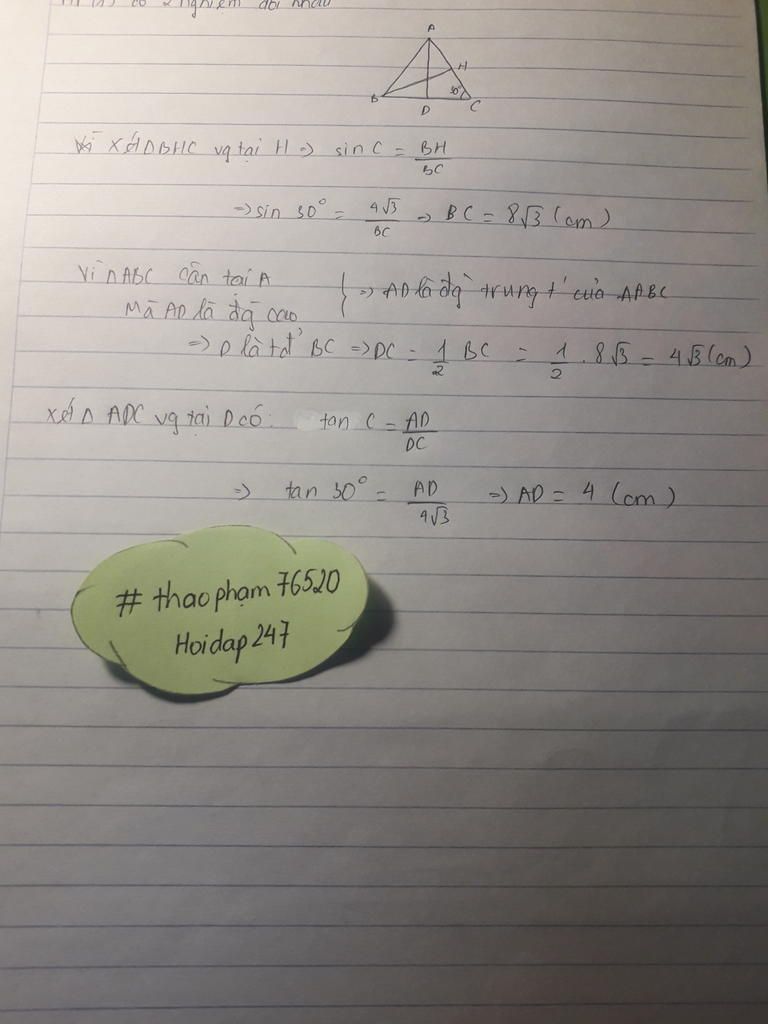 có 2 nghiệm đối nhau
A
H
B
30°
D
C
Xét ΔBHC vg tại H => sin C = BH/BC
=> sin 30° = 4√3/BC => BC = 8√3 (cm)
Vì ΔABC cân tại A
Mà AD là đg cao
} => AD là đg trung t' của ΔABC
=> D là tđ' BC => DC = 1/2 BC = 1/2 . 8√3 = 4√3 (cm)
Xét Δ ADC vg tại D có: tan C = AD/DC
=> tan 30° = AD/4√3 => AD = 4 (cm)
# thaophạm76520
Hoidap247